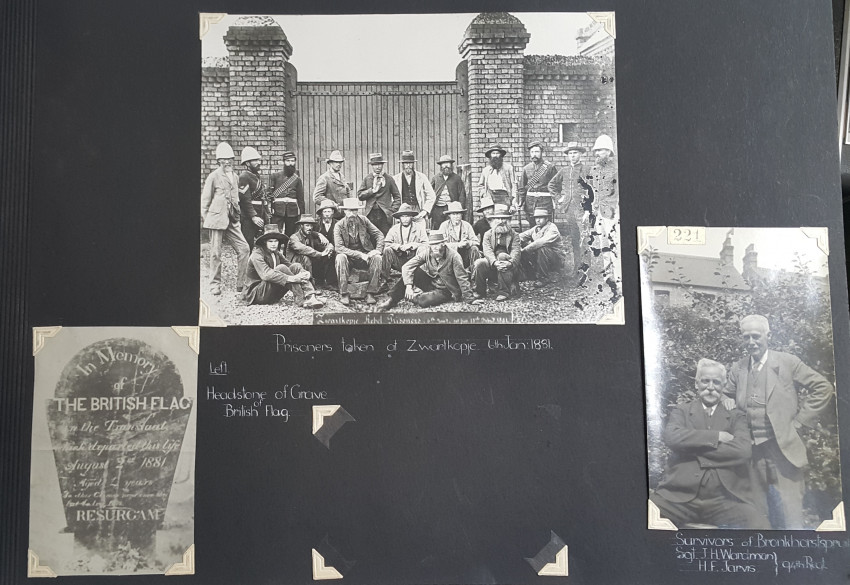 Prisoners taken at Zwartkopje 6th Jan: 1881.
Left
Headstone of Grave
of
British Flag.
In Memory
of
THE BRITISH FLAG
in the Transvaal
departed this life
August 2nd 1881
Aged 4 years
RESURGAM
221
Survivors of Bronkhorstspruit
Sgt. J.H. Wardman
H.F. Jarvis
94th Regt.